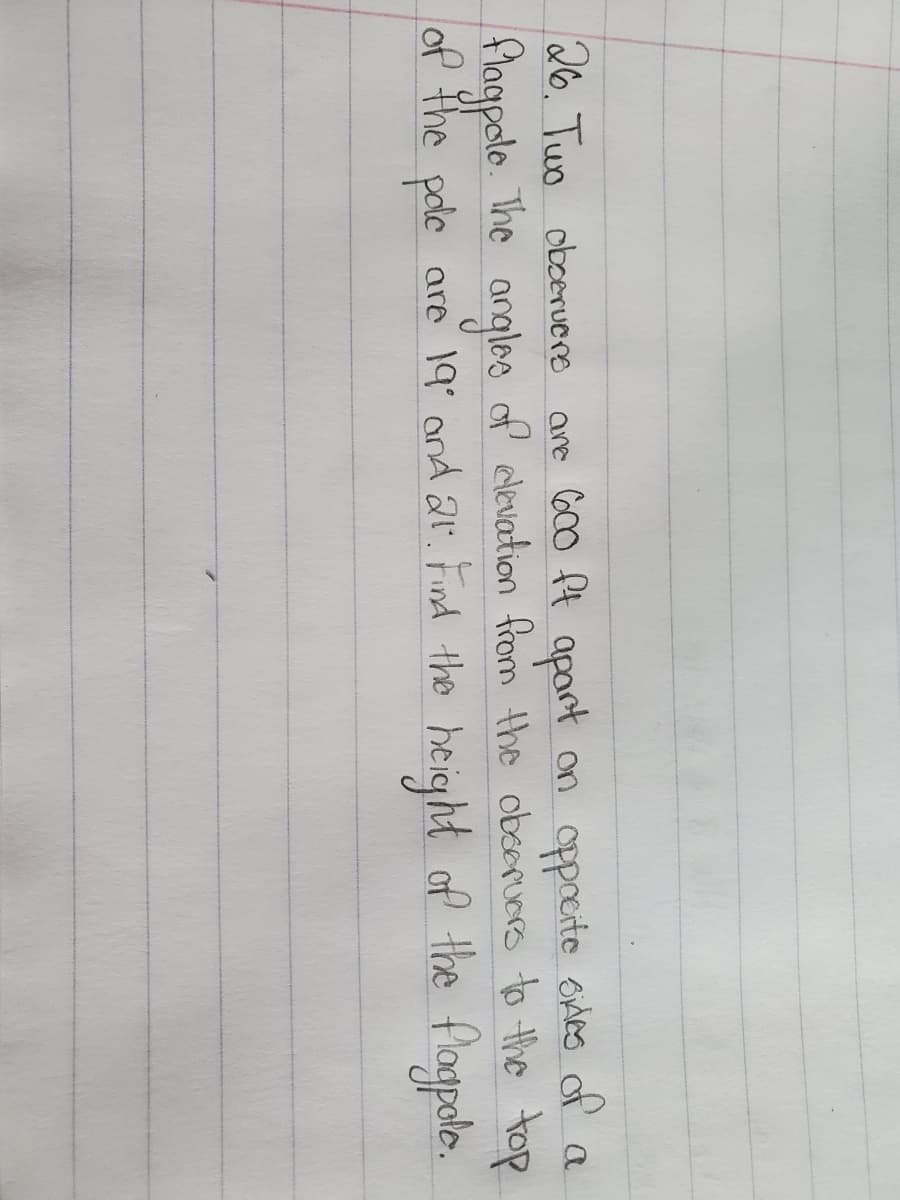 26. Two observers are 600 ft apart on opposite sides of a
flagpole. The angles of elevation from the observers to the top
of the pole are 19° and 21°. Find the height of the flagpole.